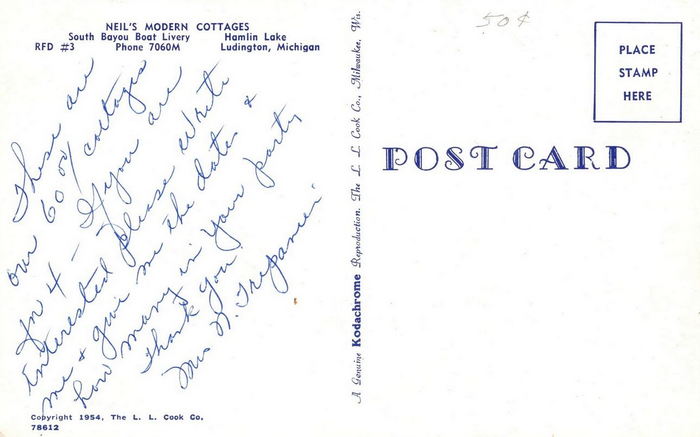 NEIL'S MODERN COTTAGES
South Bayou Boat Livery Hamlin Lake
RFD #3 Phone 7060M Ludington, Michigan
These are
our 60 00/ cottages
for 4 - If you are
interested please write
me & give me the dates &
how many in your party
Thank you
Mrs N. Trepanier
Copyright 1954, The L. L. Cook Co.
78612
A Genuine Kodachrome Reproduction. The L. L. Cook Co., Milwaukee, Wis.
50¢
PLACE
STAMP
HERE
POST CARD